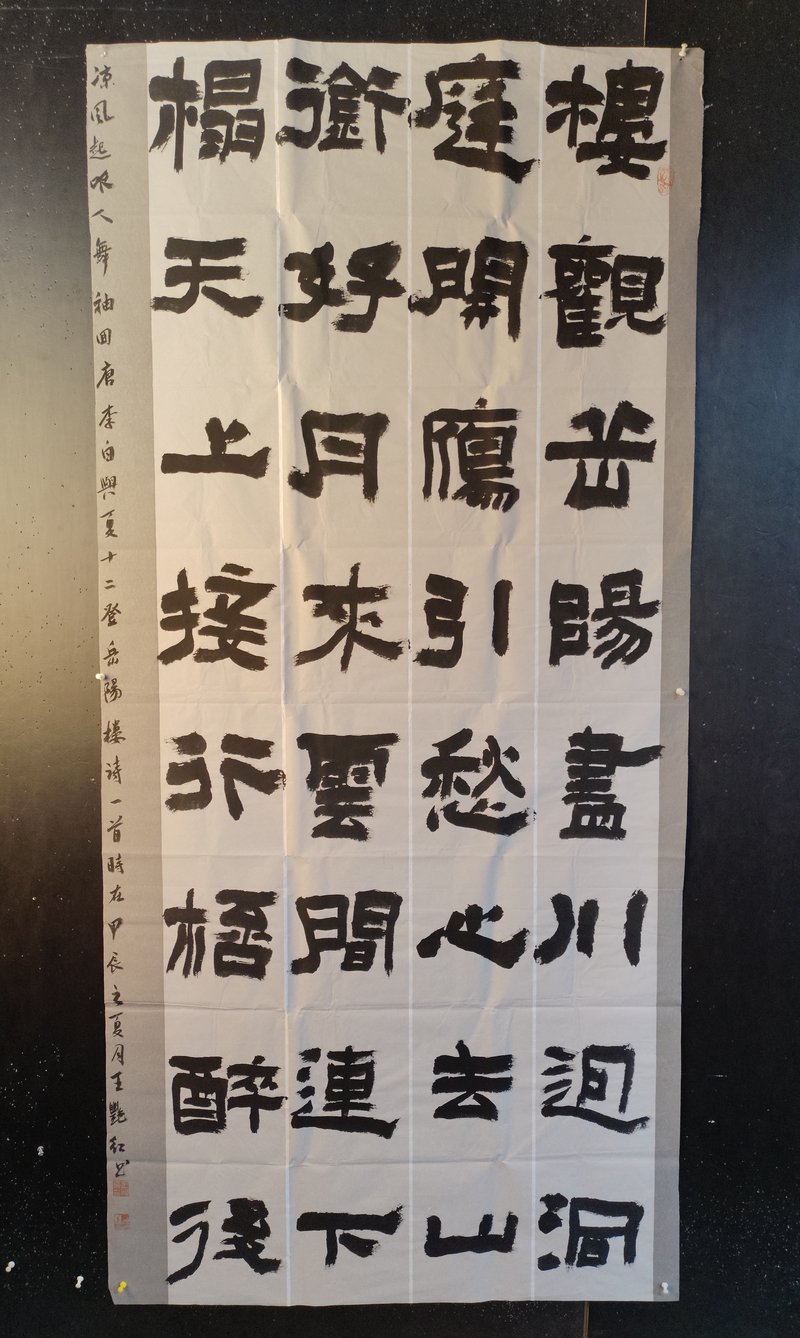 樓觀岳陽盡川迥洞
庭開鴈引愁心去山
銜好月來雲間連下
榻天上接行桮醉後
涼風起吹人舞袖回唐李白與夏十二登岳陽樓詩一首時在甲辰之夏月王艷紅書